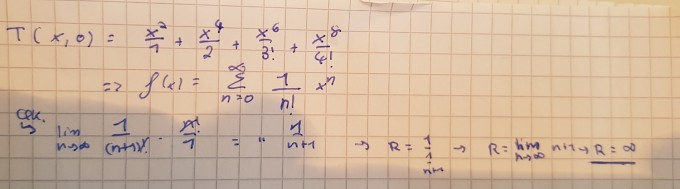 T(x,0) = x²/1 + x⁴/2 + x⁶/3! + x⁸/4!
=> f(x) = ∑_{n=0}^{∞} 1/n! xⁿ
lim_{n→∞} 1/(n+1)! · n!/1 = " 1/(n+1) → R = 1/(1/(n+1)) → R = lim_{n→∞} n+1 → R = ∞